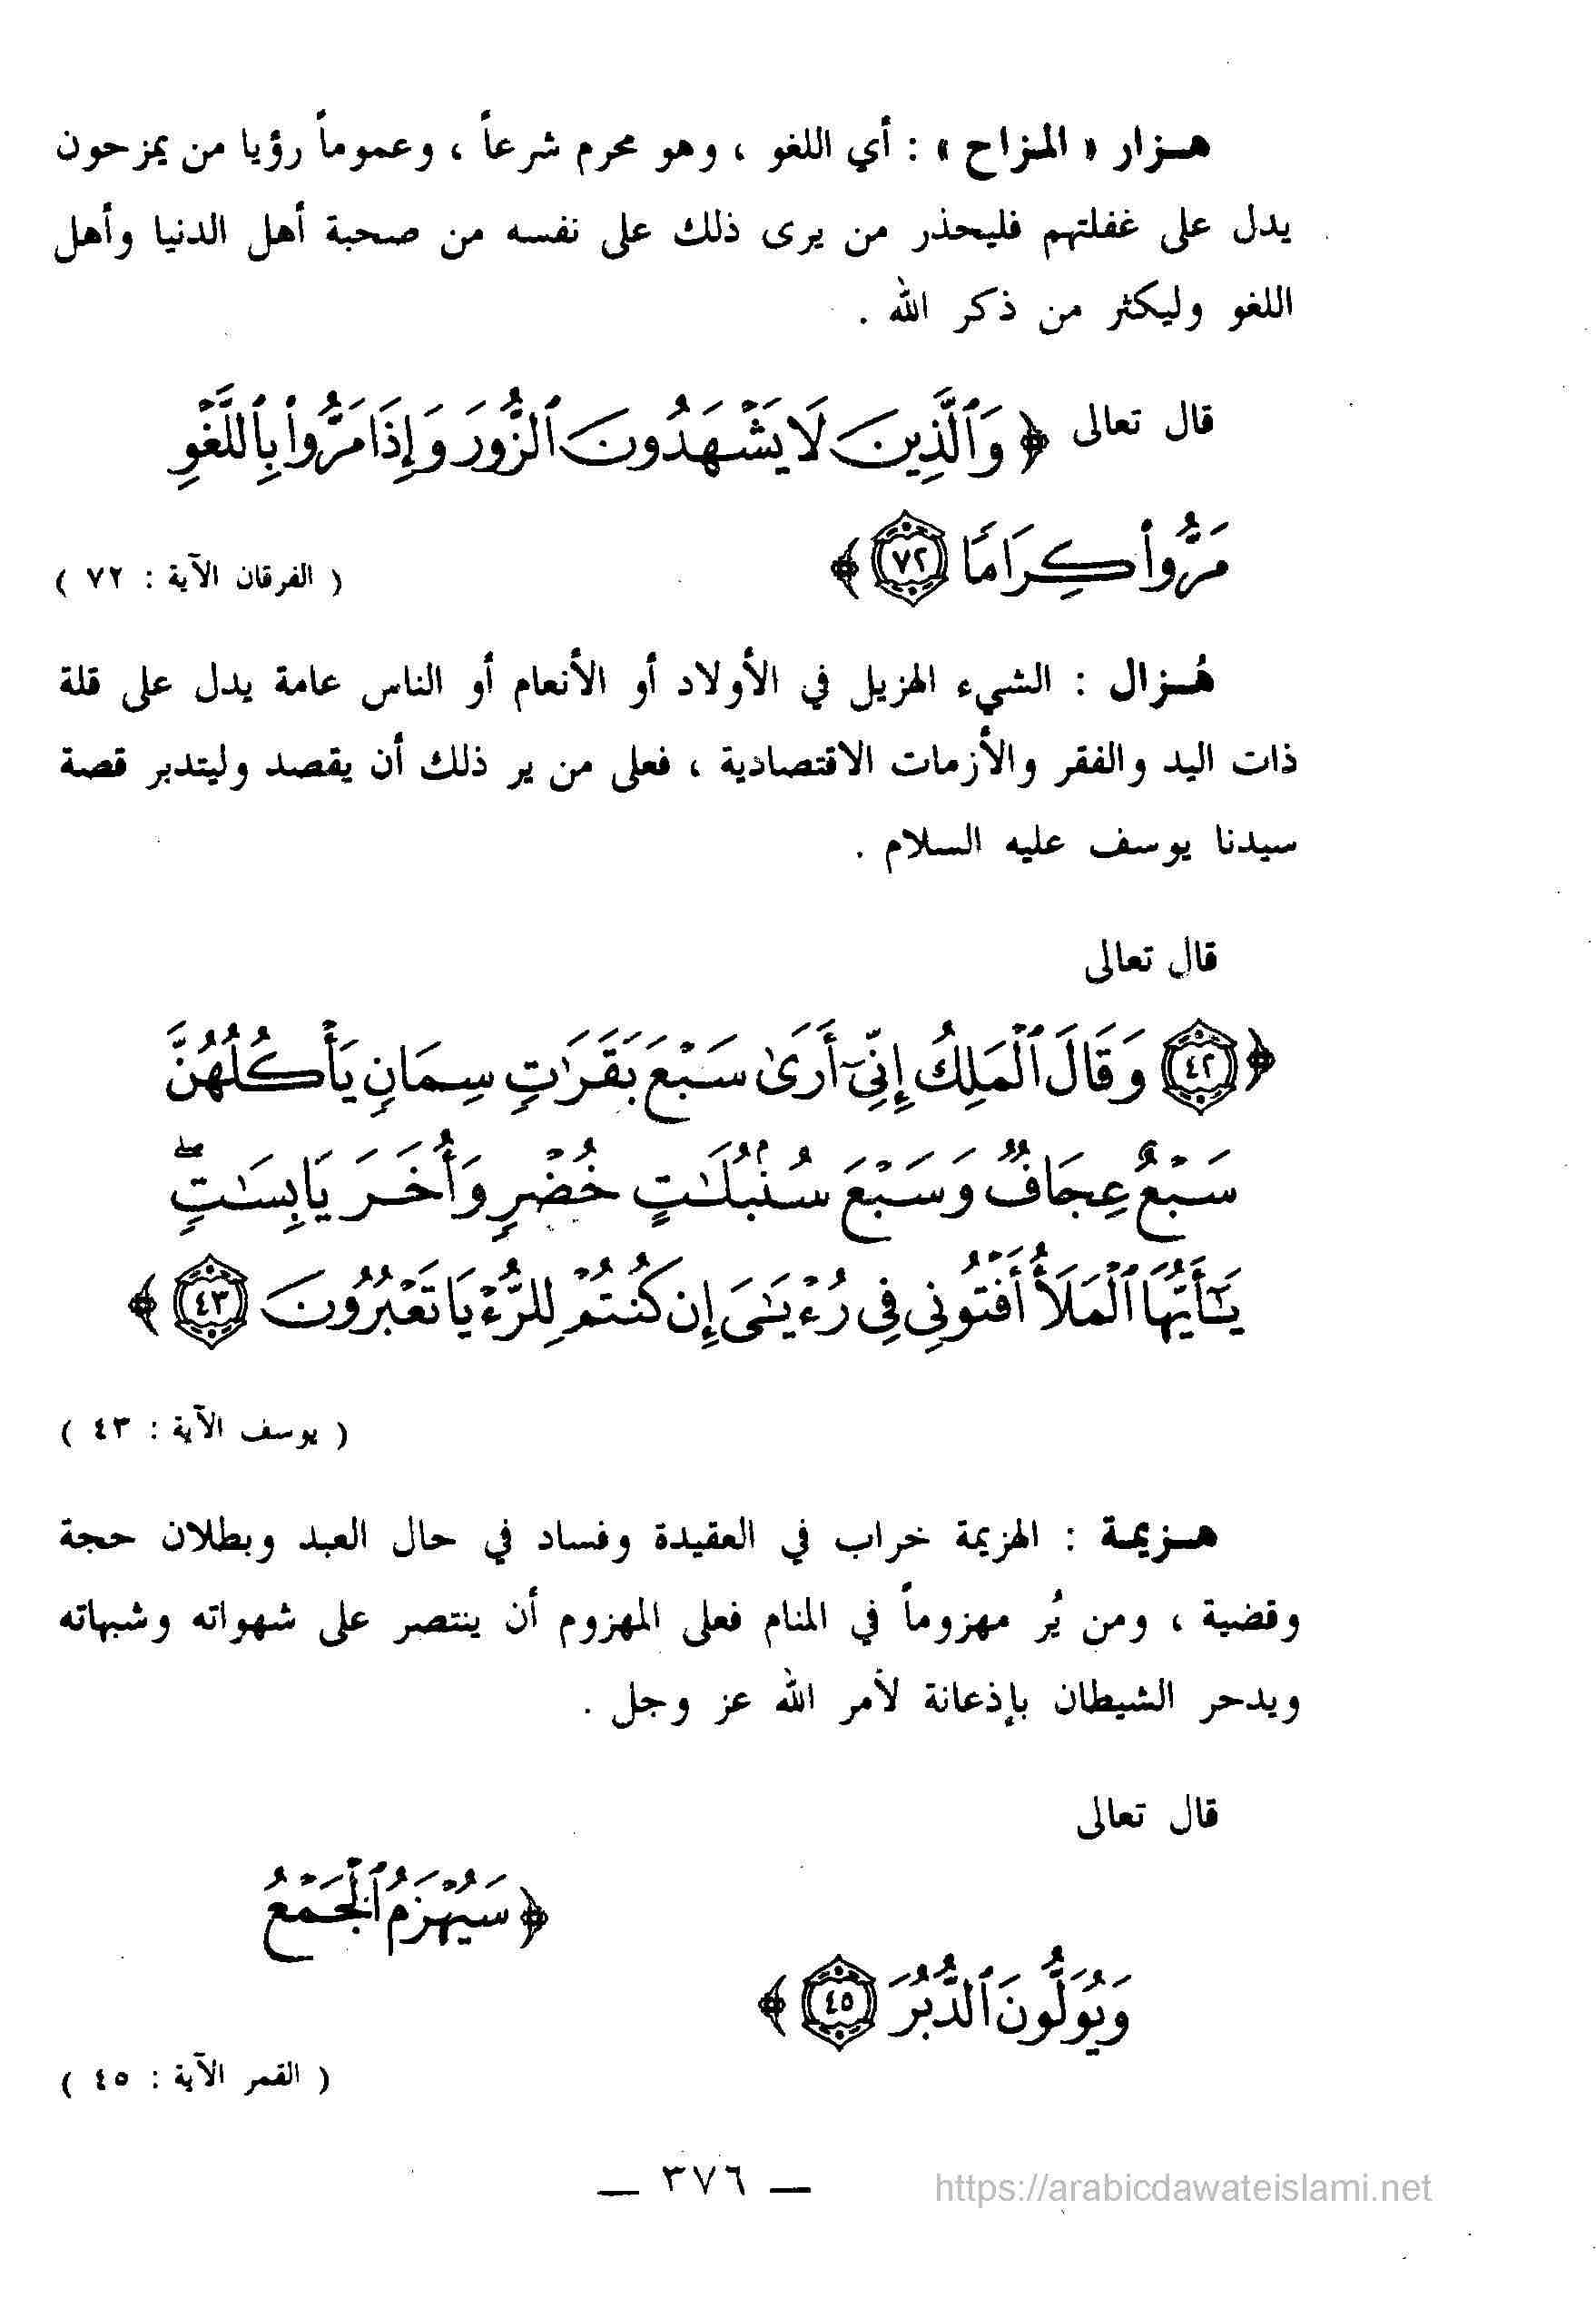 هـزار « المزاح » : أي اللغو ، وهو محرم شرعاً ، وعموماً رؤيا من يمزحون
يدل على غفلتهم فليحذر من يرى ذلك على نفسه من صحبة أهل الدنيا وأهل
اللغو وليكثر من ذكر الله .
قال تعالى ﴿ وَٱلَّذِينَ لَا يَشْهَدُونَ ٱلزُّورَ وَإِذَا مَرُّوا۟ بِٱللَّغْوِ
مَرُّوا۟ كِرَامًا ٧٢ ﴾
( الفرقان الآية : ٧٢ )
هُـزال : الشيء الهزيل في الأولاد أو الأنعام أو الناس عامة يدل على قلة
ذات اليد والفقر والأزمات الاقتصادية ، فعلى من ير ذلك أن يقصد وليتدبر قصة
سيدنا يوسف عليه السلام .
قال تعالى
﴿ ٤٢ وَقَالَ ٱلْمَلِكُ إِنِّىٓ أَرَىٰ سَبْعَ بَقَرَٰتٍ سِمَانٍ يَأْكُلُهُنَّ
سَبْعٌ عِجَافٌ وَسَبْعَ سُنۢبُلَٰتٍ خُضْرٍ وَأُخَرَ يَابِسَٰتٍ ۖ
يَٰٓأَيُّهَا ٱلْمَلَأُ أَفْتُونِى فِى رُءْيَٰىَ إِن كُنتُمْ لِلرُّءْيَا تَعْبُرُونَ ٤٣ ﴾
( يوسف الآية : ٤٣ )
هـزيمـة : الهزيمة خراب في العقيدة وفساد في حال العبد وبطلان حجة
وقضية ، ومن يُر مهزوماً في المنام فعلى المهزوم أن ينتصر على شهواته وشبهاته
ويدحر الشيطان بإذعانة لأمر الله عز وجل .
قال تعالى
﴿ سَيُهْزَمُ ٱلْجَمْعُ
وَيُوَلُّونَ ٱلدُّبُرَ ٤٥ ﴾
( القمر الآية : ٤٥ )
— ٣٧٦ —
https://arabicdawateislami.net